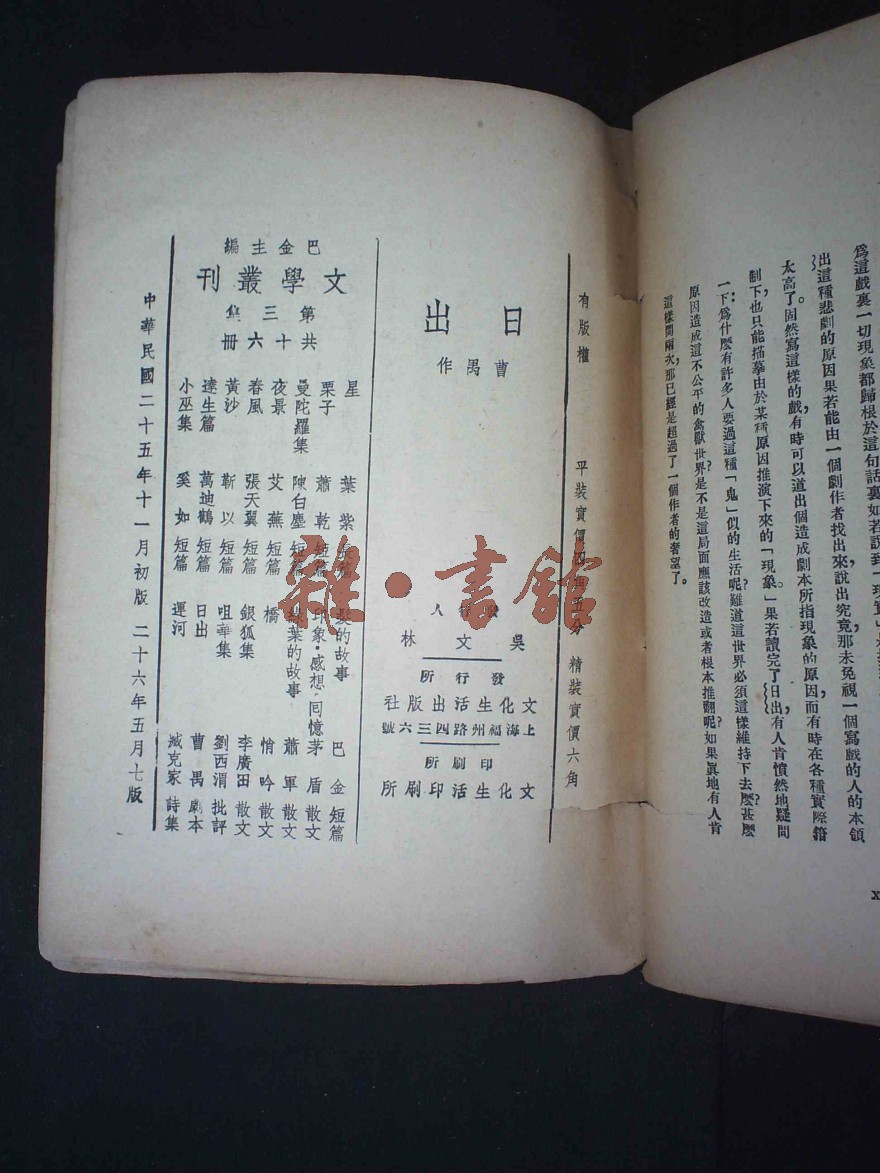 爲這戲裏一切現象都歸根於這句話裏如若說到「現實」
出這種悲劇的原因果若能由一個劇作者找出來說出究竟那未免視一個寫戲的人的本領
太高了。固然寫這樣的戲,有時可以道出個造成劇本所指現象的原因,而有時在各種實際箝
制下,也只能描摹由於某種原因推演下來的「現象」。果若讀完了日出,有人肯憤然地疑問
一下:爲什麽有許多人要過這種「鬼」似的生活呢?難道這世界必須這樣維持下去麽?甚麽
原因造成這不公平的禽獸世界?是不是這局面應該改造或者根本推翻呢?如果眞地有人肯
這樣問兩次,那已經是超過了一個作者的奢望了。
有版權
平裝實價四角五分 精裝實價六角
日出
曹禺作
發行人
吳文林
發行所
文化生活出版社
上海福州路四三六號
印刷所
文化生活印刷所
巴金主編
文學叢刊
第三集
共十六冊
星 葉紫 短篇
栗子 蕭乾 短篇
曼陀羅集 陳白塵 短篇
夜景 艾蕪 短篇
春風 張天翼 短篇
黃沙 靳以 短篇
達生篇 萬迪鶴 短篇
小巫集 奚如 短篇
髮的故事 巴金 短篇
印象·感想·回憶 茅盾 散文
綠葉的故事 蕭軍 散文
橋 悄吟 散文
銀狐集 李廣田 散文
咀華集 劉西渭 批評
日出 曹禺 劇本
運河 臧克家 詩集
中華民國二十五年十一月初版 二十六年五月七版
雜·書館